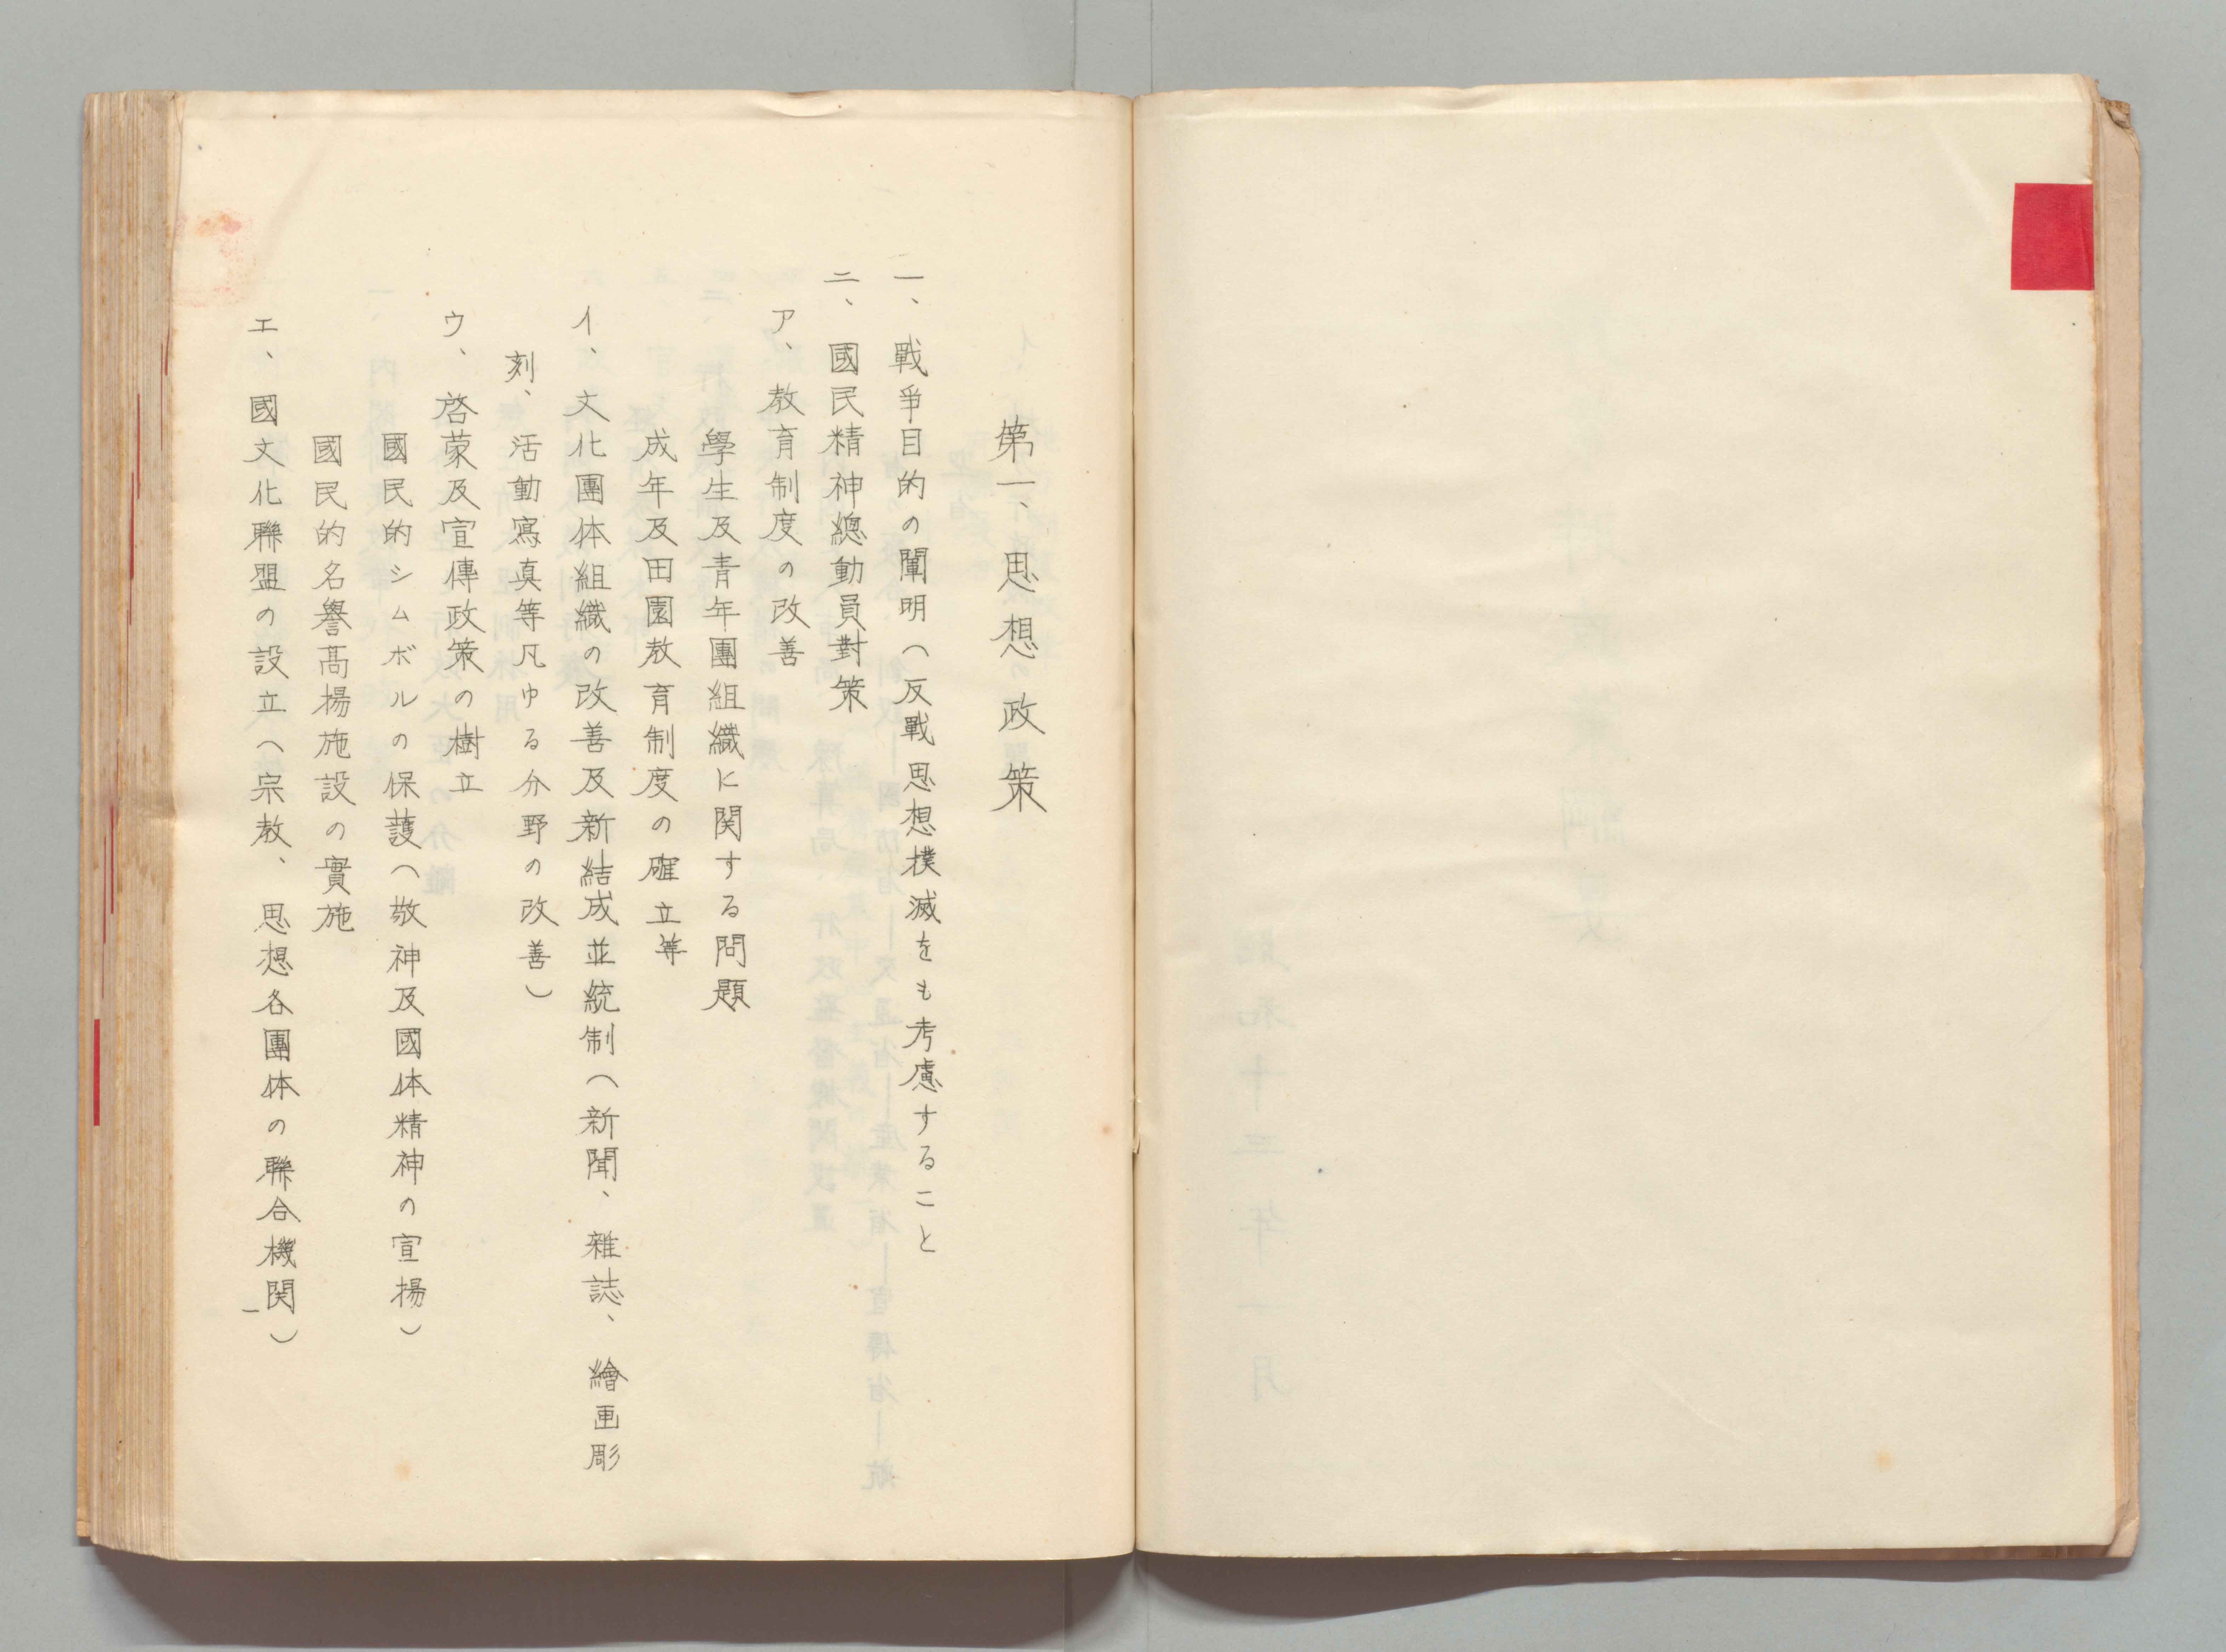 第一、思想政策
一、戰爭目的の闡明（反戰思想撲滅をも考慮すること
二、國民精神總動員對策
ア、教育制度の改善
學生及青年團組織に関する問題
成年及田園教育制度の確立等
イ、文化團体組織の改善及新結成並統制（新聞、雜誌、繪画彫
刻、活動寫真等凡ゆる分野の改善）
ウ、啓蒙及宣傳政策の樹立
國民的シムボルの保護（敬神及國体精神の宣揚）
國民的名譽髙揚施設の實施
エ、國文化聯盟の設立（宗教、思想各團体の聯合機関）
一